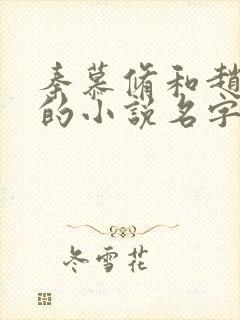 秦慕脩和趙
的小說名字
冬雪花